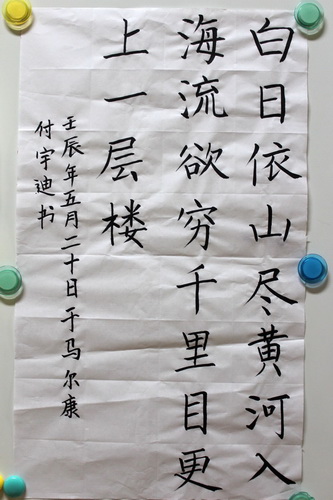 白日依山尽黄河入
海流欲穷千里目更
上一层楼
壬辰年五月二十日于马尔康
付宇迪书